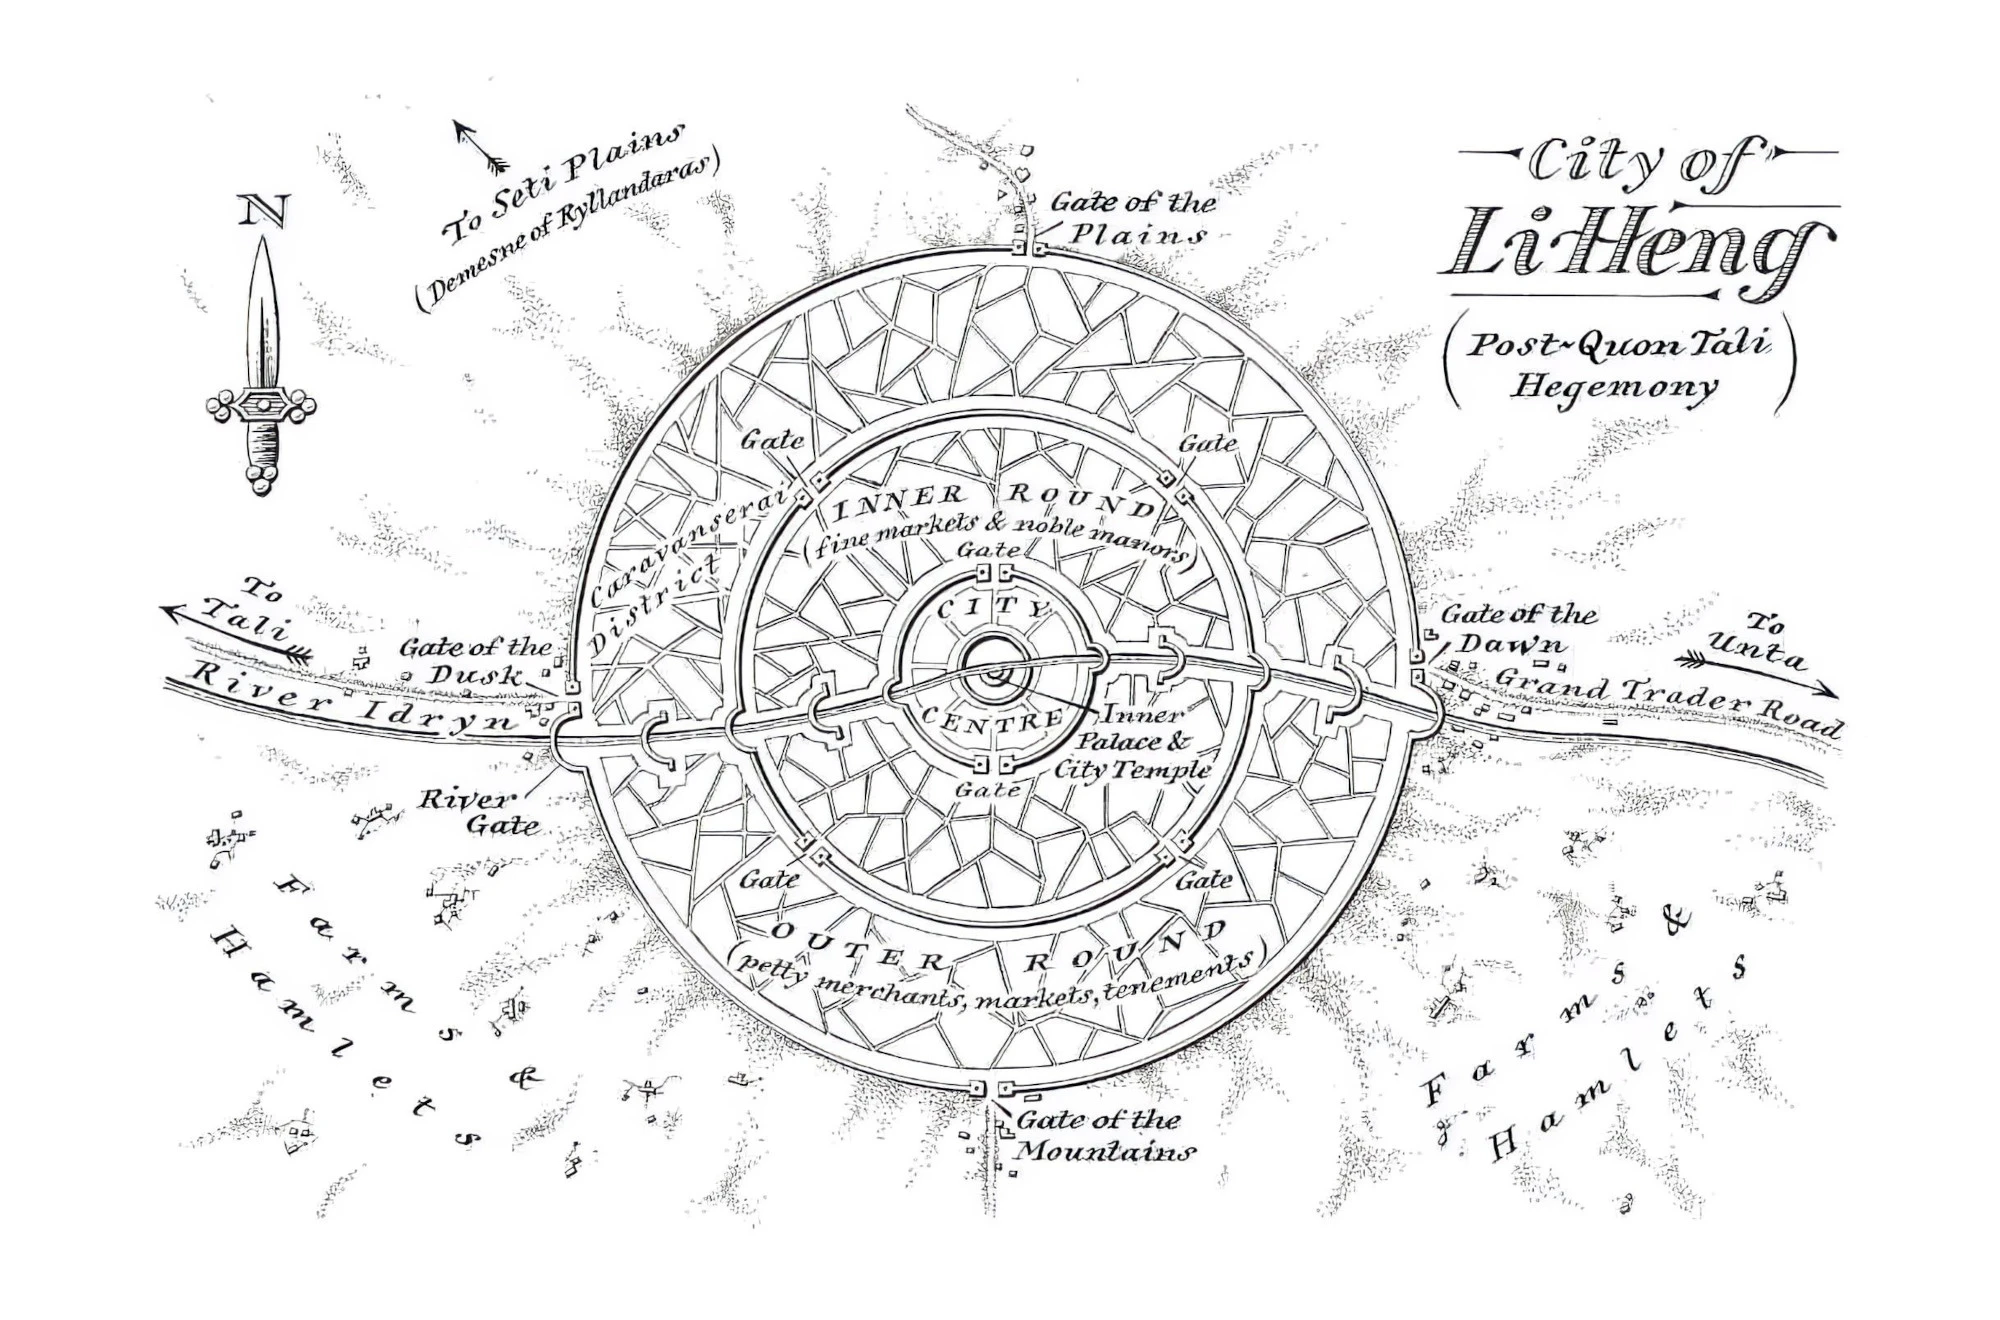 City of
Li Heng
(Post~Quon Tali
Hegemony)
N
To Seti Plains
(Demesne of Ryllandaras)
Gate of the
Plains
Gate
Gate
Caravanserai
District
INNER ROUND
(fine markets & noble manors)
Gate
CITY
CENTRE
Inner
Palace &
City Temple
Gate
To
Tali
Gate of the
Dusk
River Idryn
River
Gate
Gate of the
Dawn
To
Unta
Grand Trader Road
Gate
Gate
OUTER ROUND
(petty merchants, markets, tenements)
Farms &
Hamlets
Farms &
Hamlets
Gate of the
Mountains